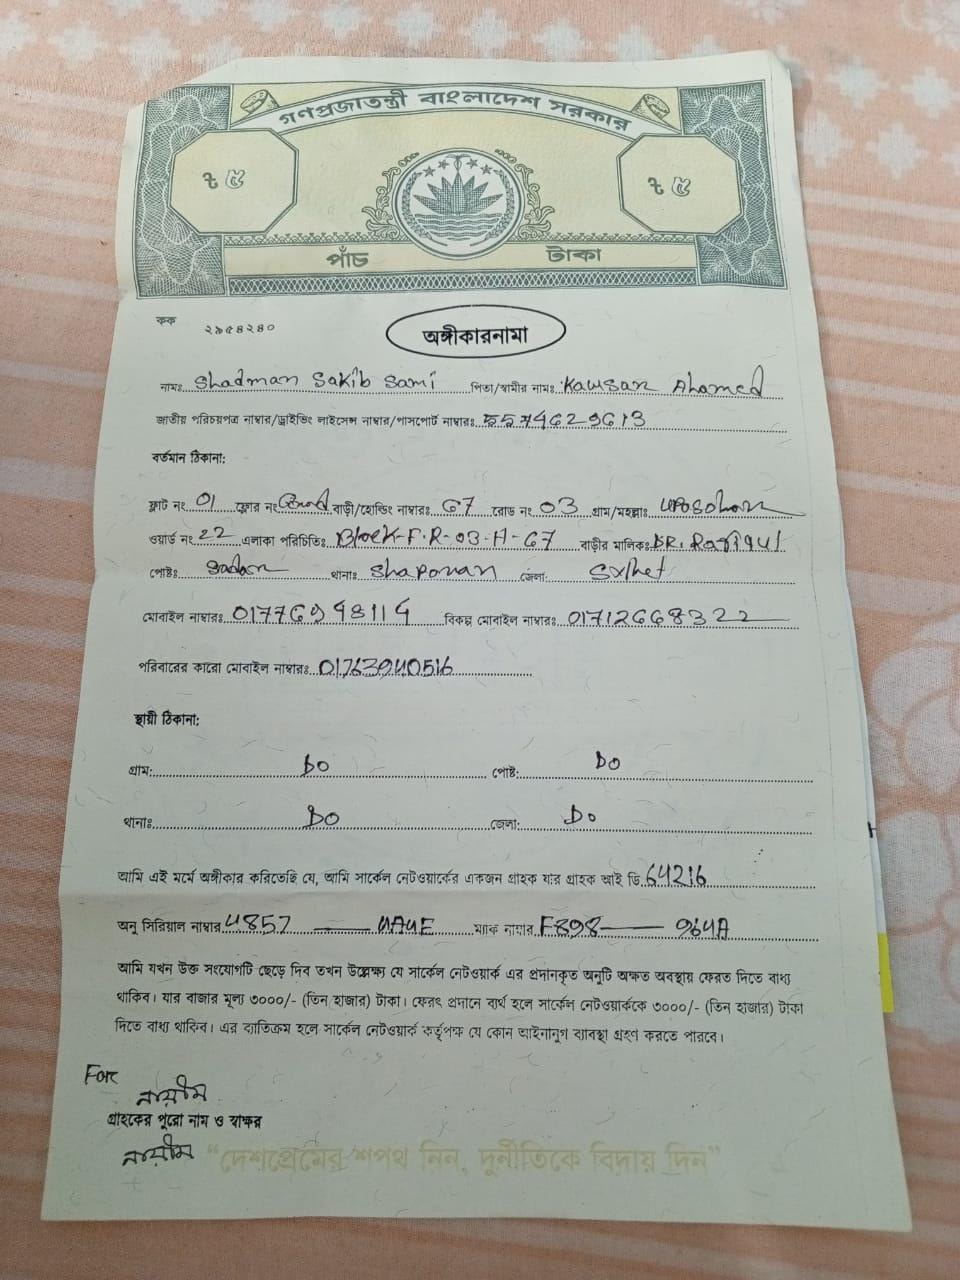 গণপ্রজাতন্ত্রী বাংলাদেশ সরকার
৳ ৫ ৳ ৫
পাঁচ টাকা
কক ২৯৫৪২৪০
অঙ্গীকারনামা
নামঃ Shadman Sakib Sami পিতা/স্বামীর নামঃ Kawsar Ahamed
জাতীয় পরিচয়পত্র নাম্বার/ড্রাইভিং লাইসেন্স নাম্বার/পাসপোর্ট নাম্বারঃ
বর্তমান ঠিকানা:
ফ্লাট নং 01 ফ্লোর নং বাড়ী/হোল্ডিং নাম্বারঃ 67 রোড নং 03 গ্রাম/মহল্লাঃ UPOSohor
ওয়ার্ড নং 22 এলাকা পরিচিতিঃ Block-F-R-03-H-67 বাড়ীর মালিকঃ DR. Rafiqul
পোষ্টঃ Sadar থানাঃ Shaporan জেলা: Sylhet
মোবাইল নাম্বারঃ 01776948114 বিকল্প মোবাইল নাম্বারঃ 01712668322
পরিবারের কারো মোবাইল নাম্বারঃ 01763940516
স্থায়ী ঠিকানা:
গ্রাম: Do পোষ্ট: Do
থানাঃ Do জেলা: Do
আমি এই মর্মে অঙ্গীকার করিতেছি যে, আমি সার্কেল নেটওয়ার্কের একজন গ্রাহক যার গ্রাহক আই ডি 64216
অনু সিরিয়াল নাম্বার 4857 — 4A4E ম্যাক নাম্বার F898 — 964A
আমি যখন উক্ত সংযোগটি ছেড়ে দিব তখন উল্লেক্ষ্য যে সার্কেল নেটওয়ার্ক এর প্রদানকৃত অনুটি অক্ষত অবস্থায় ফেরত দিতে বাধ্য
থাকিব। যার বাজার মূল্য ৩০০০/- (তিন হাজার) টাকা। ফেরৎ প্রদানে ব্যর্থ হলে সার্কেল নেটওয়ার্ককে ৩০০০/- (তিন হাজার) টাকা
দিতে বাধ্য থাকিব। এর ব্যতিক্রম হলে সার্কেল নেটওয়ার্ক কর্তৃপক্ষ যে কোন আইনানুগ ব্যবস্থা গ্রহণ করতে পারবে।
For
নায়ীম
গ্রাহকের পুরো নাম ও স্বাক্ষর
নায়ীম
“দেশপ্রেমের শপথ নিন, দুর্নীতিকে বিদায় দিন”